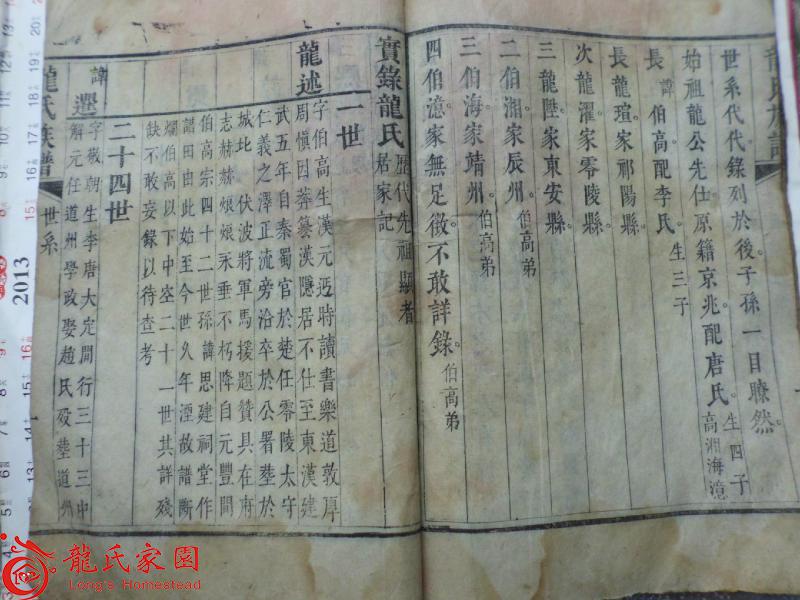 世系代代錄列於後子孫一目瞭然。
始祖龍公先仕原籍京兆配唐氏。生四子高湘海澺
長諱伯高配李氏。生三子
長龍瑄家祁陽縣。
次龍濯家零陵縣。
三龍陞家東安縣。
二伯湘家辰州。伯高弟
三伯海家靖州。伯高弟
四伯澺家無足徵不敢詳錄。伯高弟
實錄龍氏歷代先祖顯者居家記
一世
龍述字伯高生漢元
時讀書樂道敦厚
周慎因莽篡漢隱居不仕至東漢建
武五年自秦蜀官於楚任零陵太守
仁義之澤正流旁洽卒於公署塟於
城北伏波將軍馬援題贊具在府
志赫赫烺烺永垂不朽降自元豐間
伯高宗四十二世孫諱思建祠堂作
譜田由此始至今世久年湮故譜斷
爛伯高以下中空二十一世其詳殘
缺不敢妄錄以待查考
二十四世
諱選字敬朝生李唐大定間行三十三中
解元任道州學政娶趙氏歿塟道州
龍氏族譜
世系
2013
龍氏家園
Long's Homestead